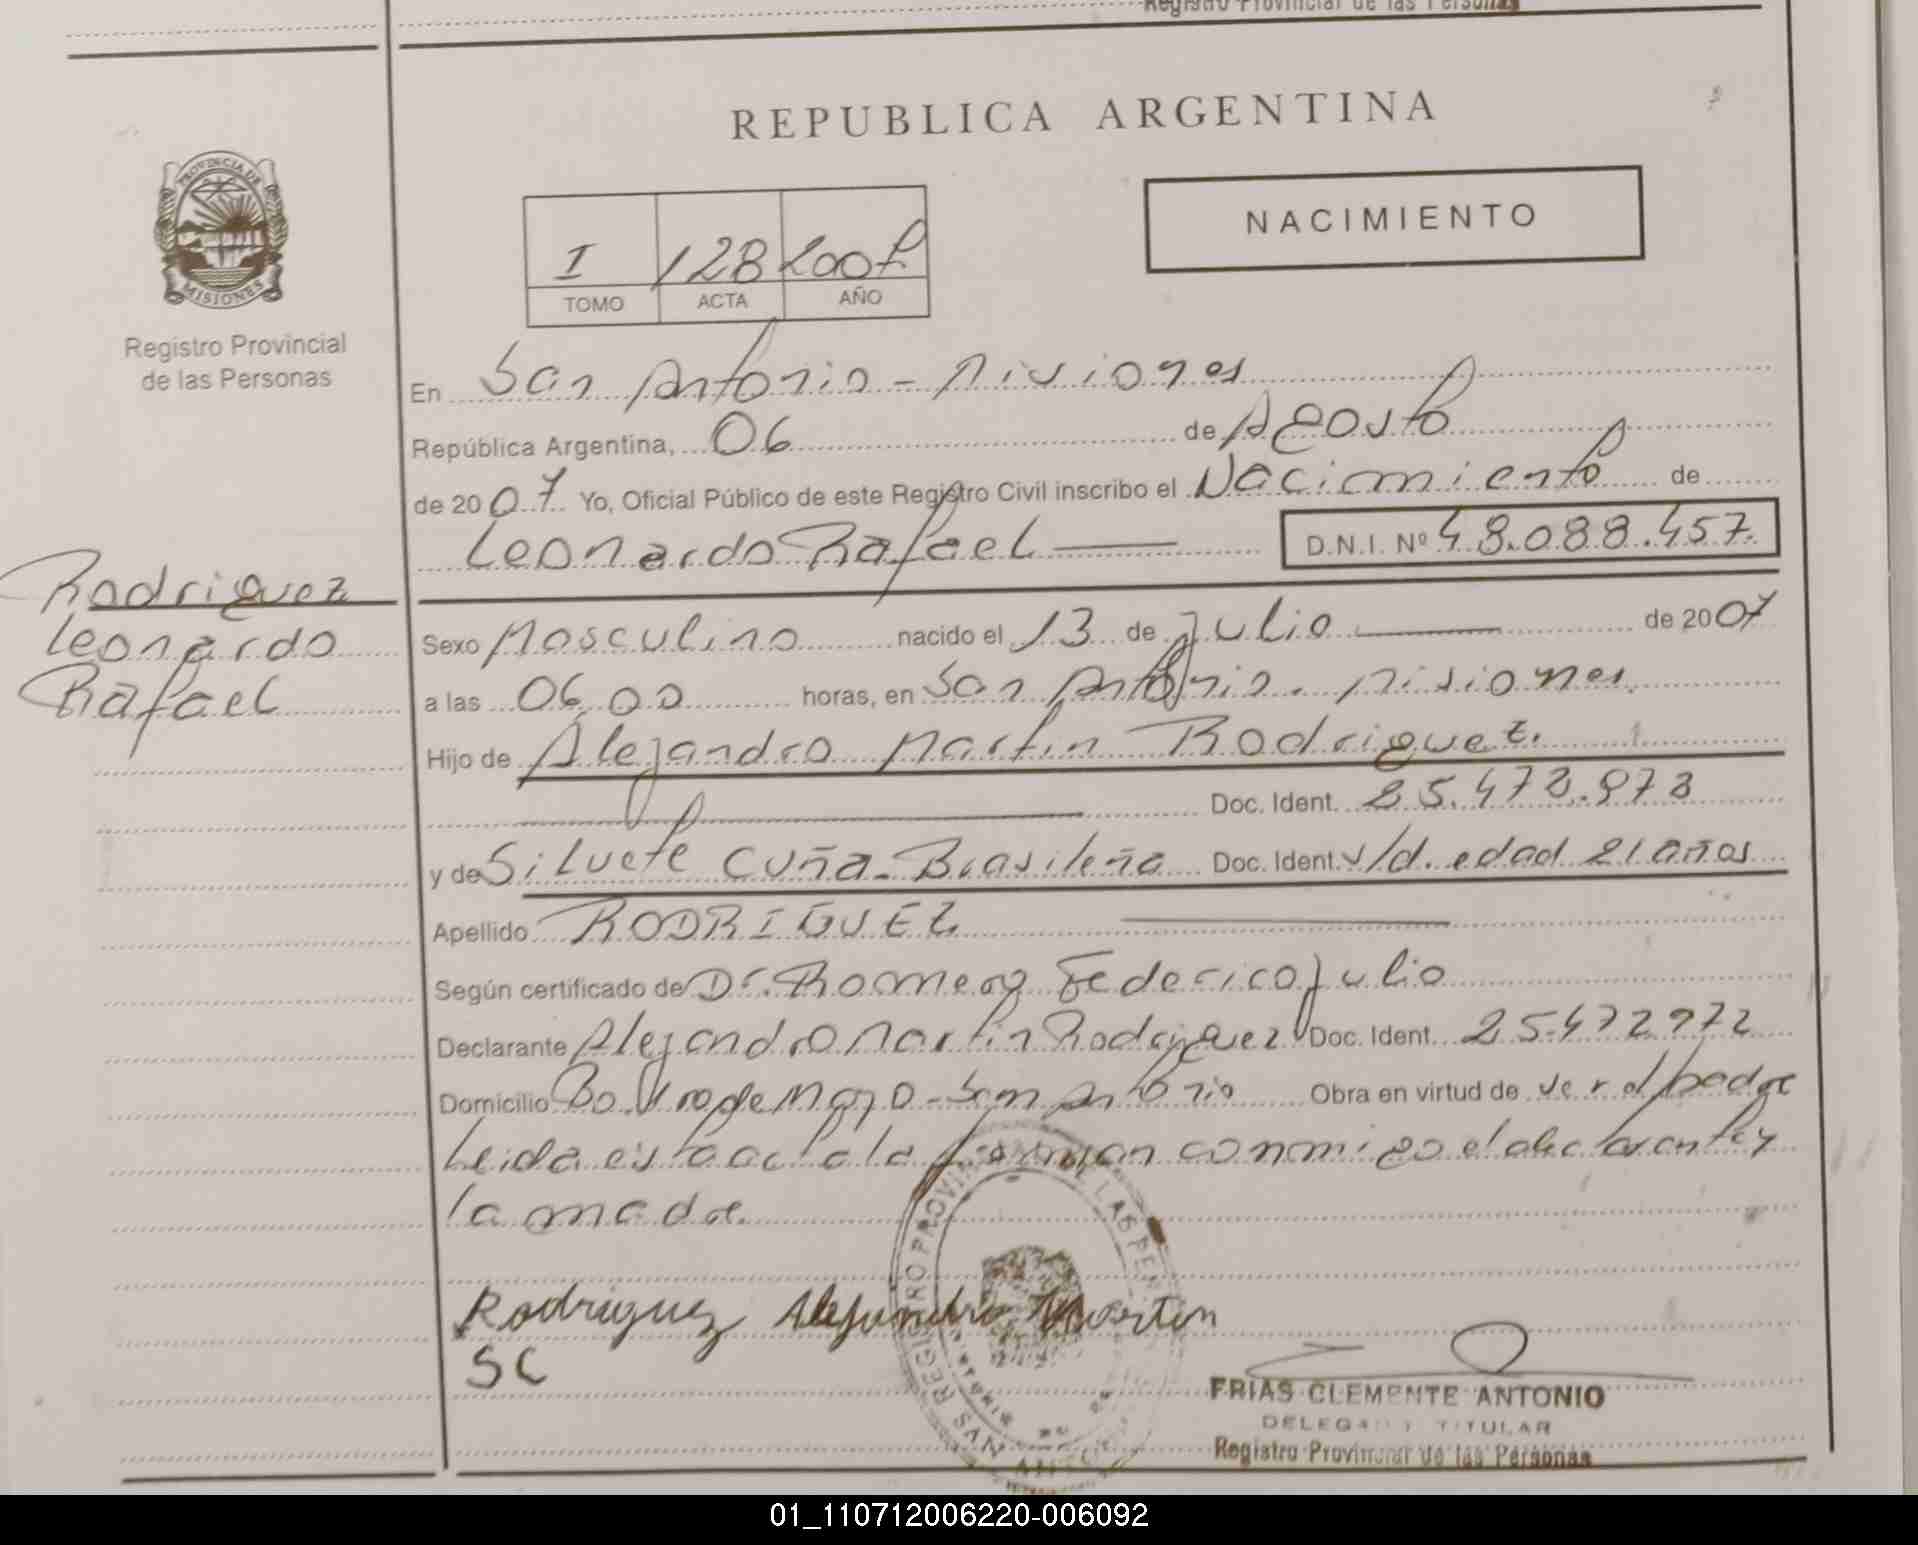 Registro Provincial de las Personas
REPUBLICA ARGENTINA
PROVINCIA DE
MISIONES
Registro Provincial
de las Personas
NACIMIENTO
I 128 2007
TOMO ACTA AÑO
En San Antonio - Misiones
República Argentina, 06 de Agosto
de 2007 Yo, Oficial Público de este Registro Civil inscribo el Nacimiento de
Leonardo Rafael D.N.I. Nº 48.088.457.
Rodriguez
Leonardo
Rafael
Sexo Masculino nacido el 13 de Julio de 2007
a las 06,00 horas, en San Antonio. Misiones.
Hijo de Alejandro Martin Rodriguez.
Doc. Ident. 25.472.972
y de Siluete Cuña - Brasileña Doc. Ident. s/d. edad 21 años
Apellido RODRIGUEZ
Según certificado de Dr. Romero Federico Julio
Declarante Alejandro Martin Rodriguez Doc. Ident. 25.472972
Domicilio Bo. 1ro de Mayo - San Antonio Obra en virtud de ser el padre
Leida esta acta la firman conmigo el declarante y
la madre.
Rodriguez Alejandro Martin
SC
REGISTRO PROVINCIAL DE LAS PERSONAS
SAN ANTONIO
FRIAS CLEMENTE ANTONIO
DELEGADO TITULAR
Registro Provincial de las Personas
01_110712006220-006092